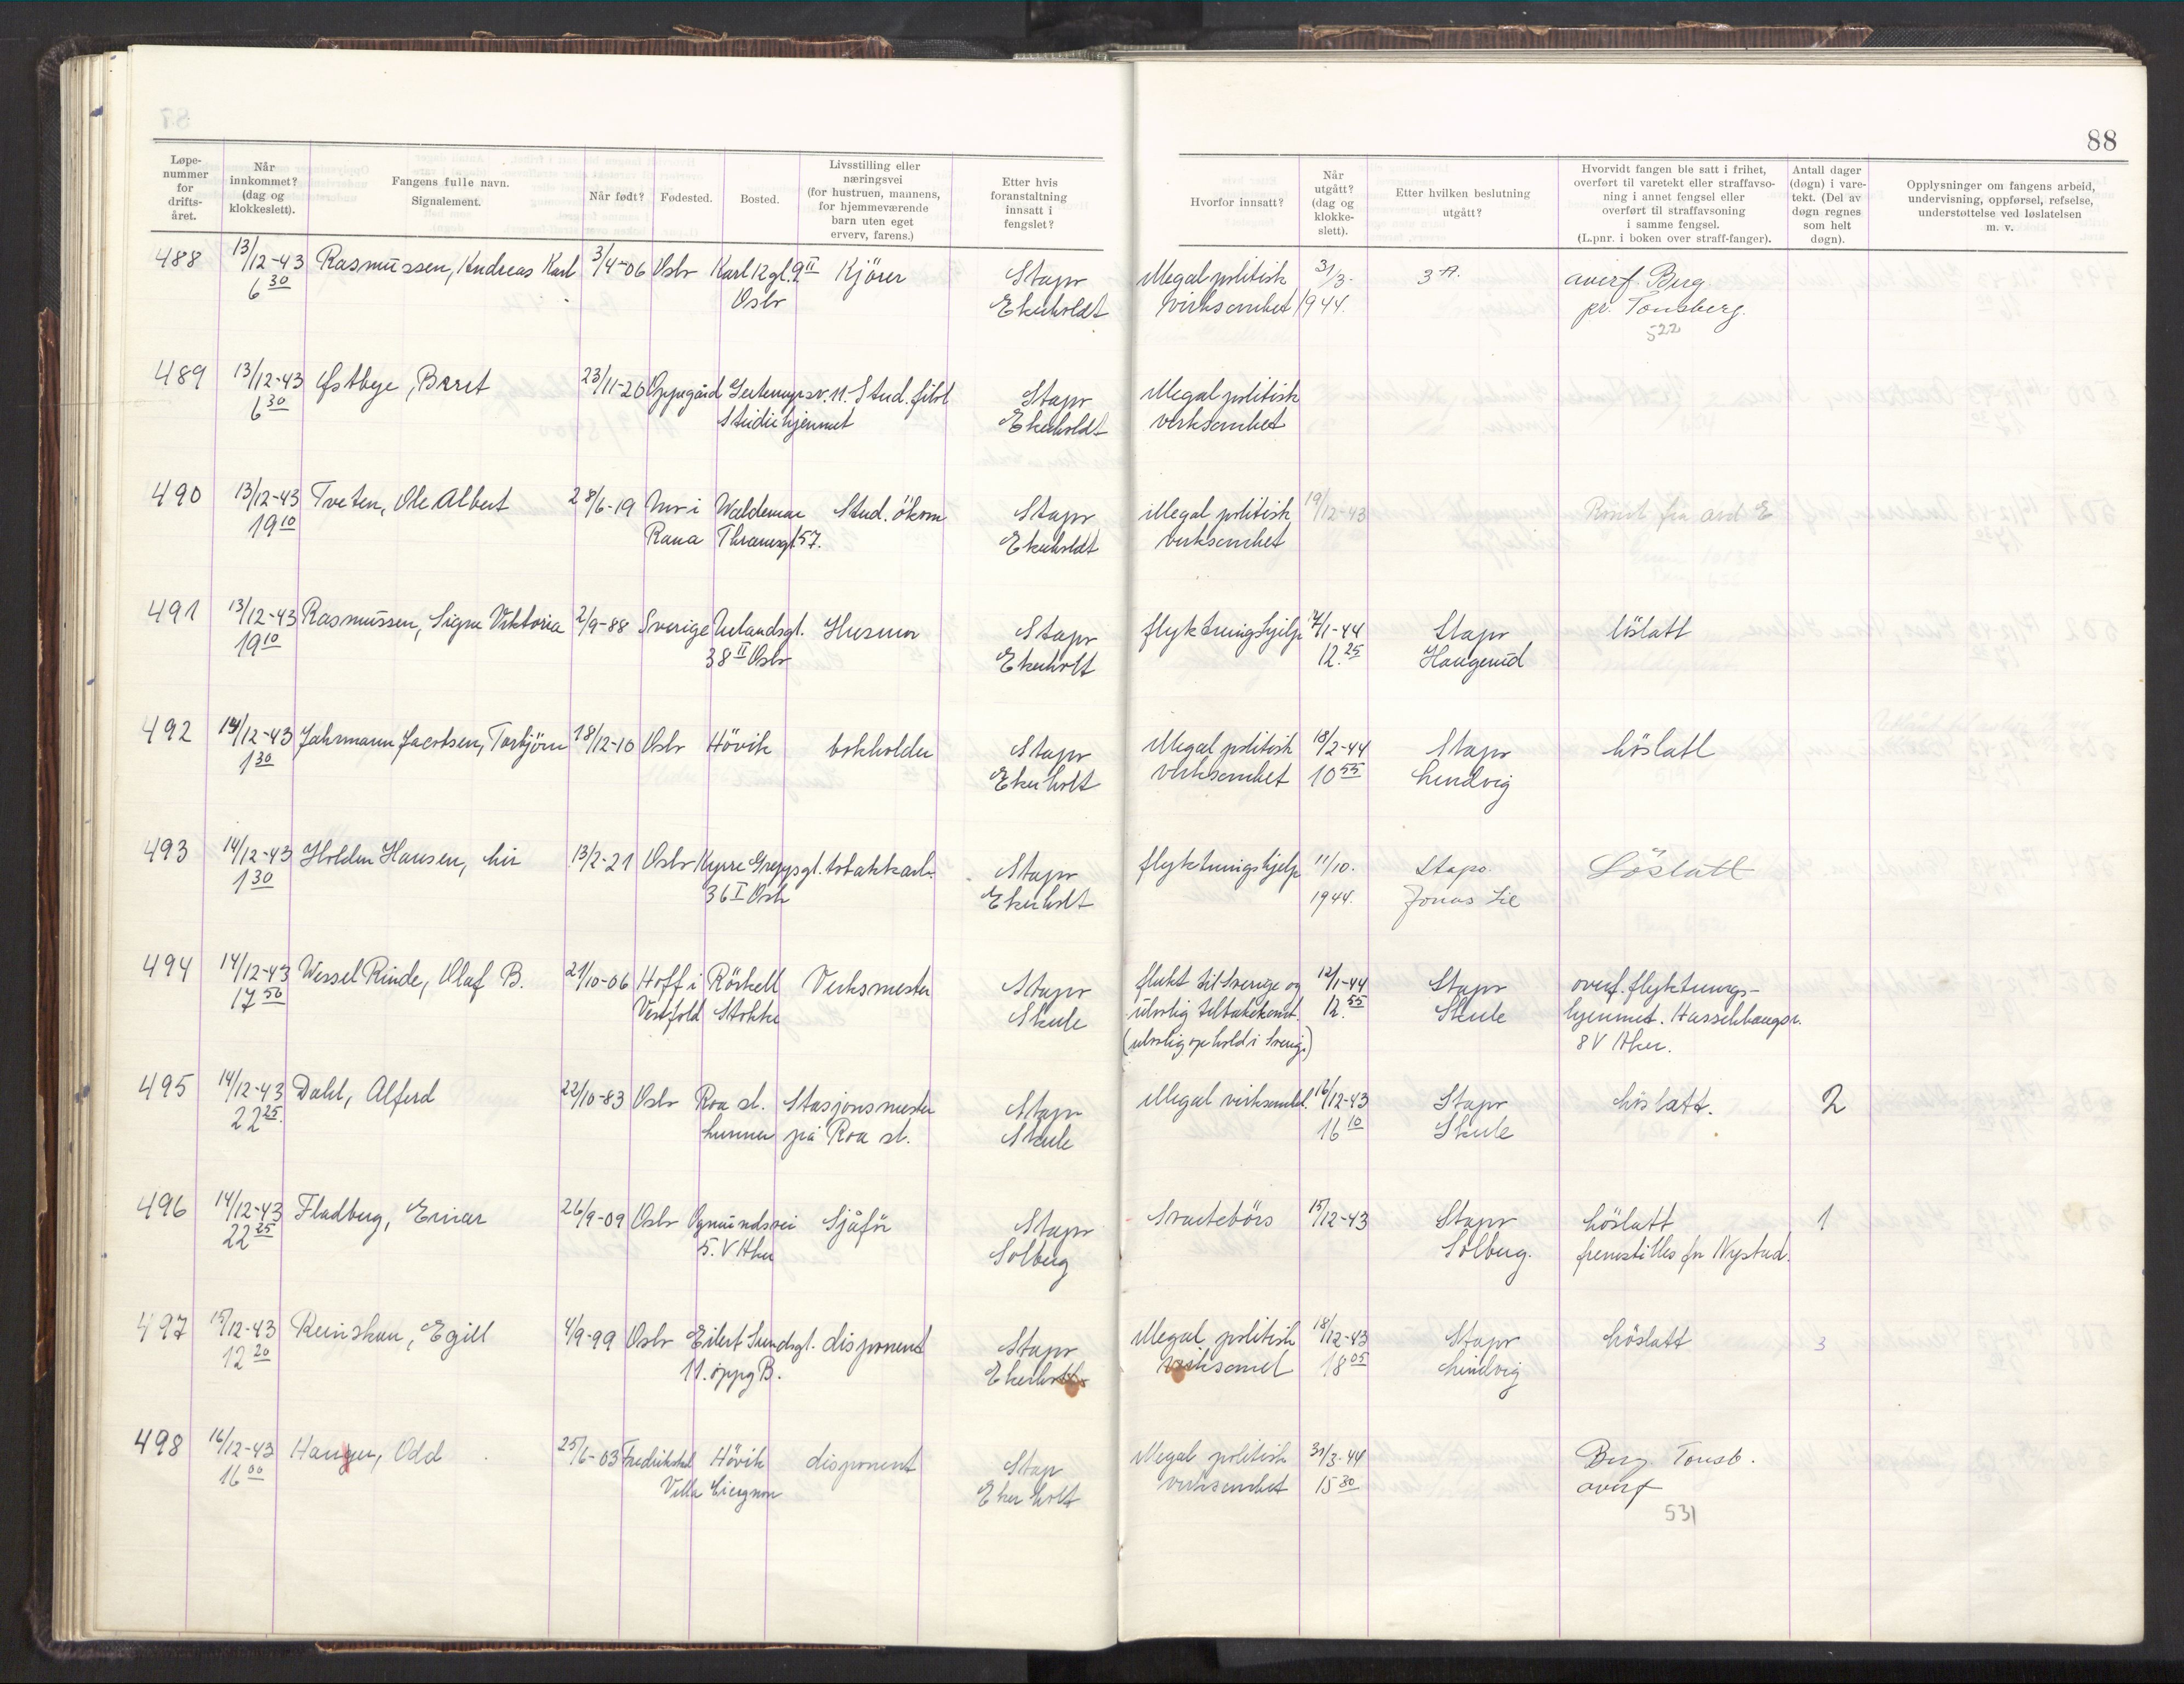 88
Løpe-nummer for drifts-året.
Når innkommet? (dag og klokkeslett).
Fangens fulle navn. Signalement.
Når født?
Fødested.
Bosted.
Livsstilling eller næringsvei (for hustruen, mannens, for hjemmeværende barn uten eget erverv, farens.)
Etter hvis foranstaltning innsatt i fengslet?
Hvorfor innsatt?
Når utgått? (dag og klokke-slett).
Etter hvilken beslutning utgått?
Hvorvidt fangen ble satt i frihet, overført til varetekt eller straffavso-ning i annet fengsel eller overført til straffavsoning i samme fengsel. (L.pnr. i boken over straff-fanger).
Antall dager (døgn) i vare-tekt. (Del av døgn regnes som helt døgn).
Opplysninger om fangens arbeid, undervisning, oppførsel, refselse, understøttelse ved løslatelsen m. v.
488 13/12-43 Rasmussen, Andreas Karl 3/4-06 Oslo Karl 12 gt. 9 II Kjörer Stapo Illegal politisk 31/3- 3 A. overf. Berg
6 30 Oslo Ekerholdt virksomhet 1944. pr. Tønsberg.
522
489 13/12-43 Østbye, Berit 23/11-20 Oppegård Geitemyrsv. 11. Stud. filol Stapo Illegal politisk
6 30 Studiehjemmet Ekerholdt virksomhet
490 13/12-43 Tveten, Ole Albert 28/6-19 Mo i Waldemar Stud. ökon Stapo illegal politisk 19/12-43 Rømt fra avd E
19 10 Rana Thranesgt 57. Ekerholdt virksomhet
491 13/12-43 Rasmussen, Signe Viktoria 2/9-88 Sverige Uelandsgt. Husmor Stapo flyktningshjelp /1-44 Stapo löslatt
19 10 38 II Oslo Ekerholt 12.25 Haugerud
492 14/12-43 Jahrmann Jacobsen, Torbjörn 18/12-10 Oslo Hövik bokholder Stapo Illegal politisk 18/2-44 Stapo Löslatt
1 30 Ekerholt virksomhet 10 55 Lindvig
493 14/12-43 Holden Hansen, Liv 13/2-21 Oslo Kyrre Grepsgt. tobakkarb. Stapo flyktningshjelp 11/10. Stapo Löslatt
1 30 36 I Oslo Ekerholt 1944. Jonas Lie
494 14/12-43 Wessel Rinde, Olaf B. 21/10-06 Hoff i Rörkoll Verksmester Stapo flukt til Sverige og 12/1-44 Stapo overf. flyktnings-
17 50 Vestfold Stokke Skule ulovlig tilbakekomst. 12.55 Skule hjemmet. Hasselhaugv.
(ulovlig opphold i Sverige) 8 V Aker.
495 14/12-43 Dahl, Alferd 22/10-83 Oslo Roa st. Stasjonsmester Stapo Illegal virksomhet. 16/12-43 Stapo Löslatt. 2
22 25. Lunner på Roa st. Skule 16 10 Skule
496 14/12-43 Fladberg, Einar 26/9-09 Oslo Ogmundsvei Sjåför Stapo Svartebörs 15/12-43 Stapo Löslatt 1
22 25 5. V Aker Solberg Solberg. fremstilles for Nystad.
497 15/12-43 Reinskou, Egill 4/9-99 Oslo Eilert Sundsgt. disponent Stapo Illegal politisk 18/12-43 Stapo Löslatt 3
12 20 11. oppg B. Ekerholt virksomet 18 05 Lindvig
498 16/12-43 Haugen, Odd 25/6-03 Fredrikstad Hövik disponent Stapo Illegal politisk 31/3-44 Berg Tønsb.
16 00 Villa Ekerholt virksomhet 15 30 overf
531